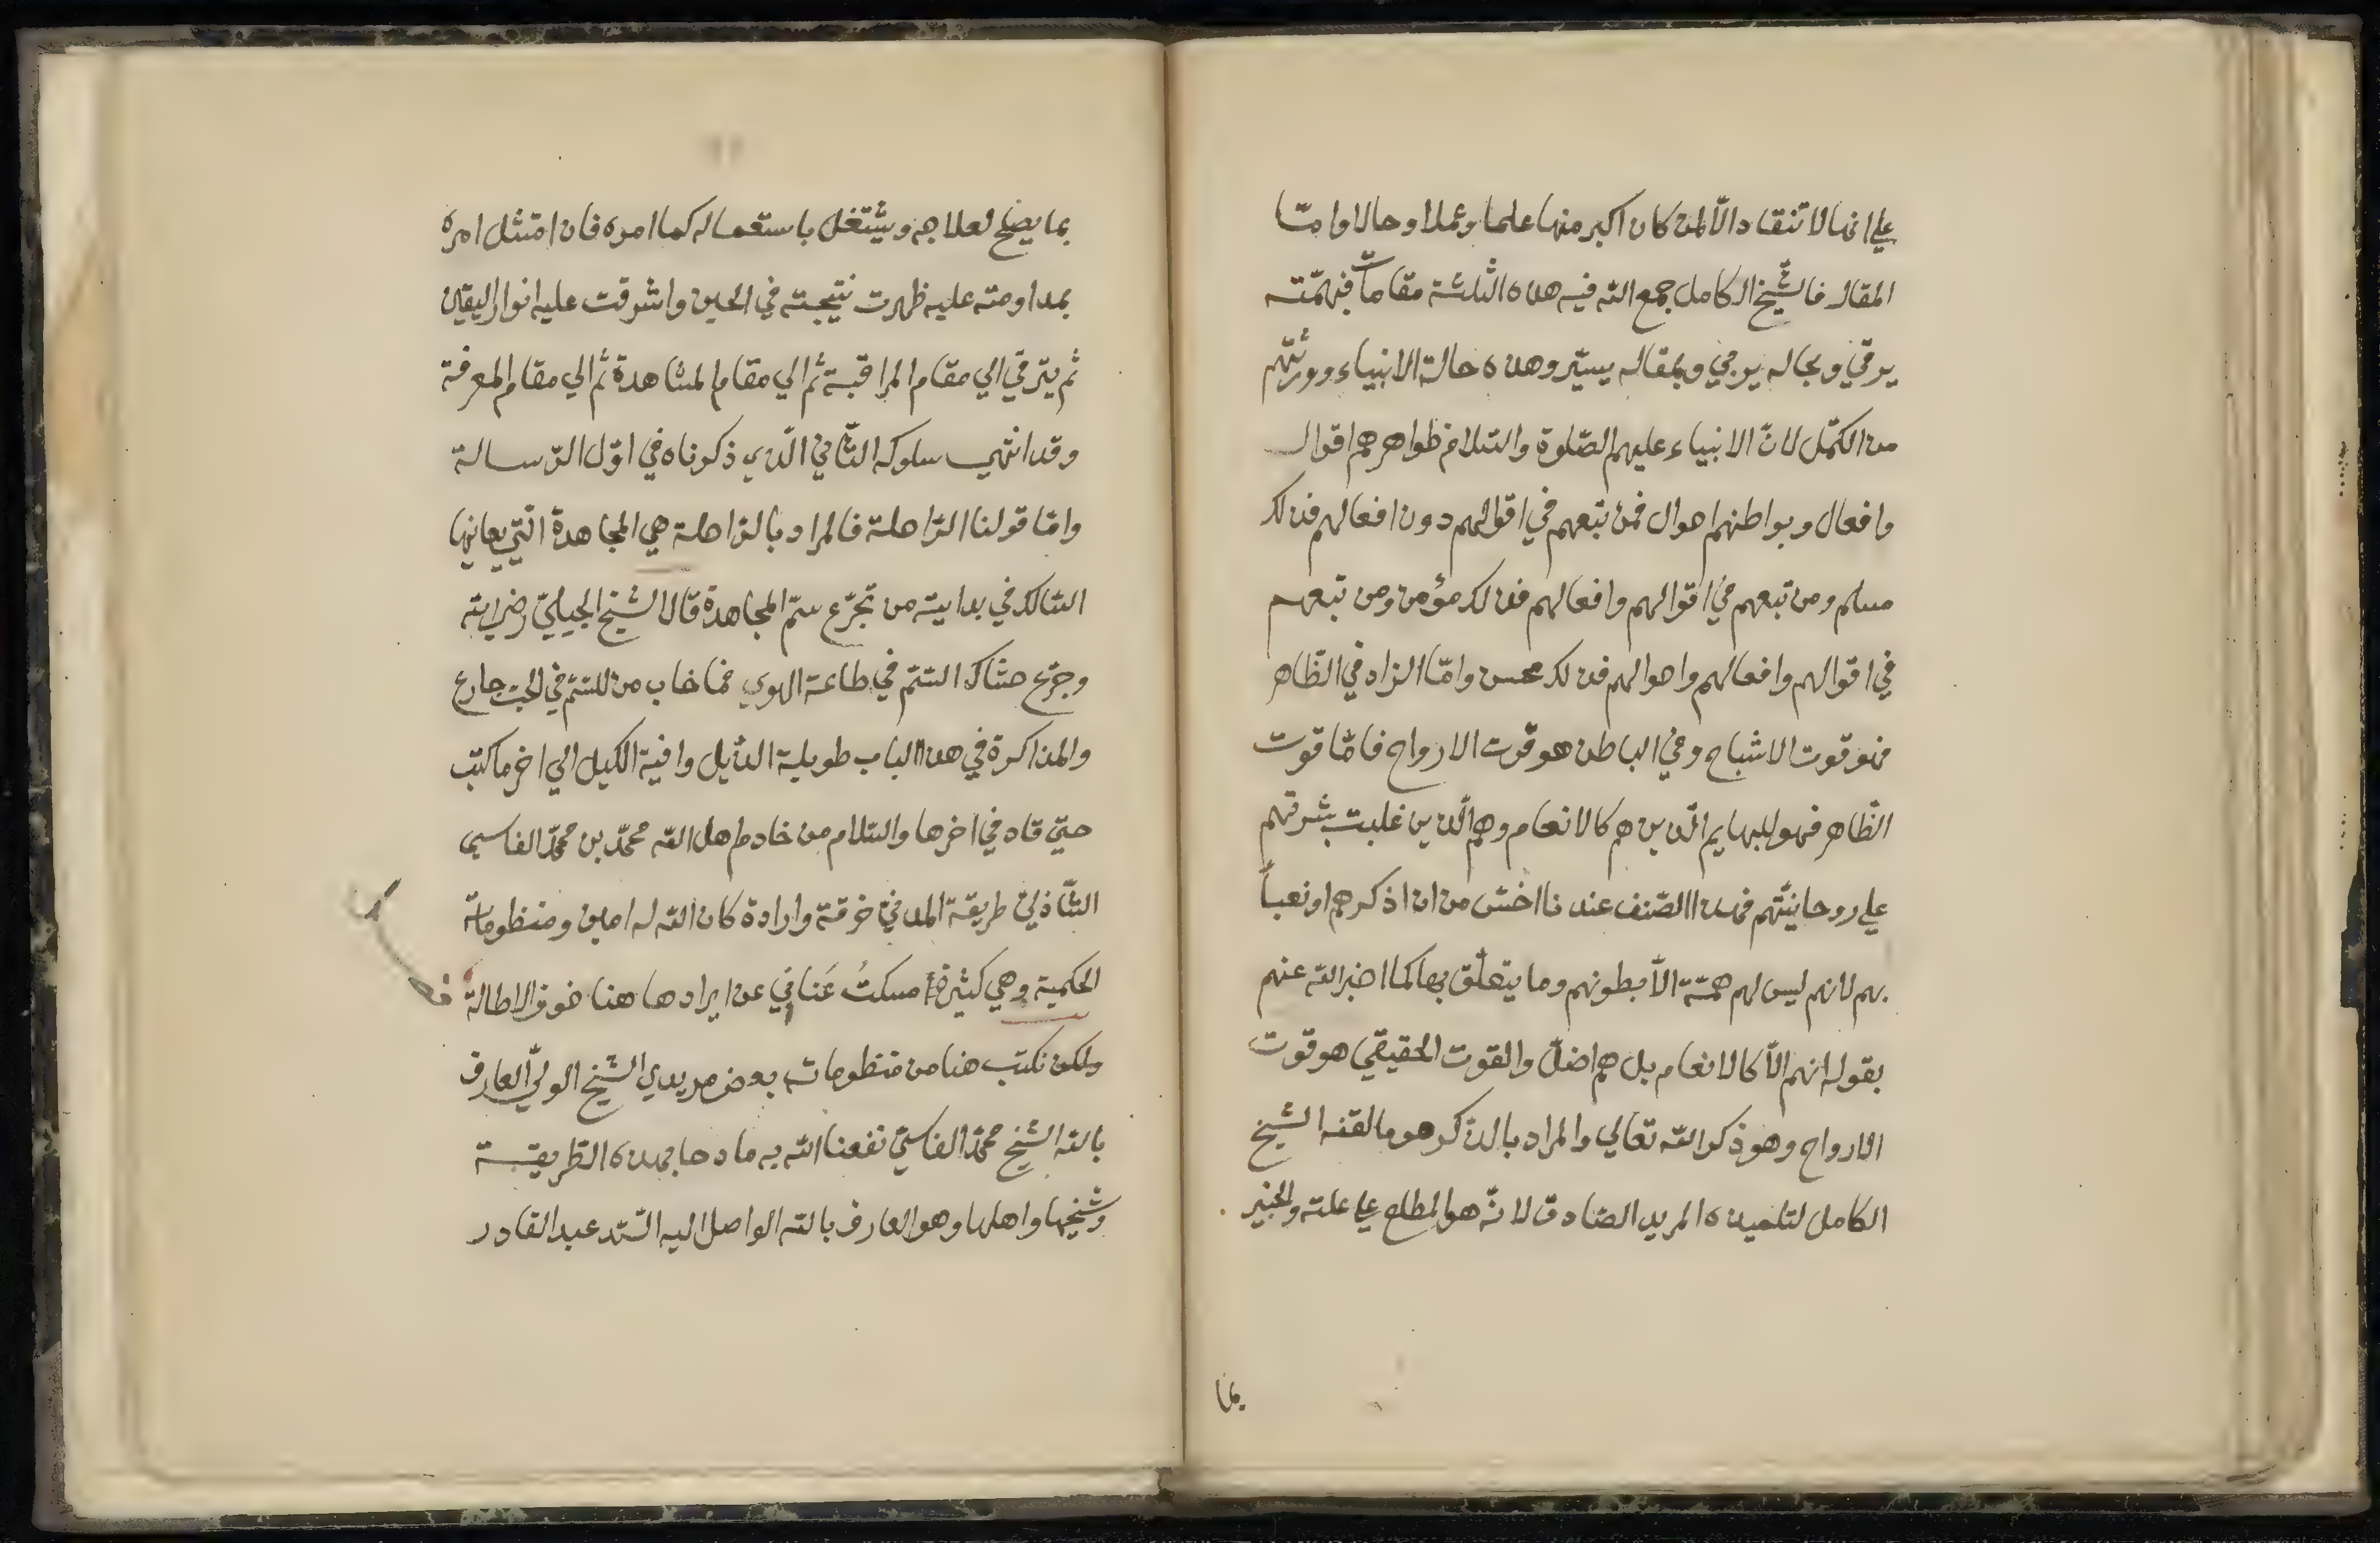 علي انها لا تنقاد الّا لمن كان اكبر منها علما وعملا وحالا وامّا
المقال فالشّيخ الكامل جمع الله فيه هذه الثلثة مقامات فبهمّته
يرقي وبحاله يرجي وبمقاله يسيّر وهذه حالة الانبياء وورثتهم
من الكمّل لانّ الانبياء عليهم الصّلوة والسّلام ظواهرهم اقوال
وافعال وبواطنهم احوال فمن تبعهم في اقوالهم دون افعالهم فذلك
مسلم ومن تبعهم في اقوالهم وافعالهم فذلك مؤمن ومن تبعهم
في اقوالهم وافعالهم واحوالهم فذلك محسن وامّا الزاد في الظّاهر
فهو قوت الاشباح وفي الباطن هو قوت الارواح فامّا قوت
الظّاهر فهو للبهايم الّذين هم كالانعام وهم الّذين غلبت بشرتهم
علي روحانيّتهم فهذا الصّنف عندنا اخسّ من ان اذكرهم او نعبأ
بهم لانهم ليس لهم همّة الّا بطونهم وما يتعلّق بها كما اخبر الله عنهم
بقوله انهم الّا كالانعام بل هم اضلّ والقوت الحقيقي هو قوت
الارواح وهو ذكر الله تعالي والمراد بالذّكر هو ما لقنه الشّيخ
الكامل لتلميذه المريد الصّادق لانّه هو المطلع علي علته والخبير
بما
بما يصلح لعلاجه ويشتغل باستعماله كما امره فان امتثل امره
بمداومته عليه ظهرت نتيجته في الحين واشرقت عليه انوار اليقين
ثم يترقّي الي مقام المراقبة ثم الي مقام المشاهدة ثم الي مقام المعرفة
وقد انتهي سلوكه الثّاني الّذي ذكرناه في اوّل الرّسالة
وامّا قولنا الرّاحلة فالمراد بالرّاحلة هي المجاهدة الّتي يعانيها
السّالك في بدايته من تجرّع سمّ المجاهدة قال الشّيخ الجيليّ رضي الله
وجرّع حشاك السّمّ في طاعة الهوي فما خاب من للسّمّ في الحبّ جارع
والمذاكرة في هذا الباب طويلة الذّيل وافية الكيل الي اخر ما كتب
حتّي قال في اخرها والسّلام من خادم اهل الله محمّد بن محمّد الفاسي
الشّاذليّ طريقة المدنيّ خرقة وارادة كان الله له امين ومنظوماته
الحكمية وهي كثيرة أمسكتُ عَناني عن ايرادها هنا خوف الاطالة
ولكن نكتب هنا من منظومات بعض مريدي الشّيخ الوليّ العارف
بالله الشّيخ محمّد الفاسيّ نفعنا الله به مادحا بهذه الطّريقة
وشيخها واهلها وهو العارف بالله الواصل اليه السّيّد عبد القادر